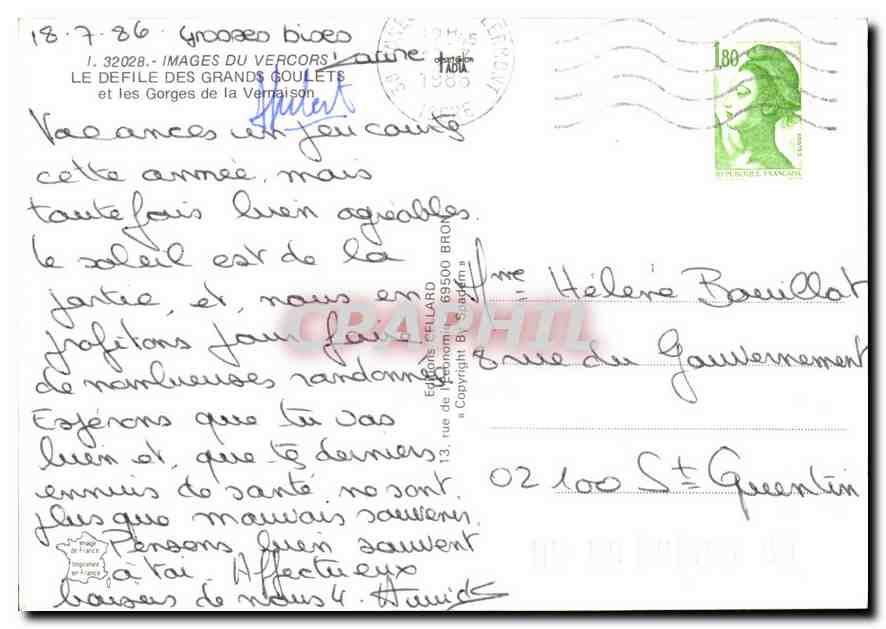 18.7.86 Grosses bises
Laure
I. 32028.- IMAGES DU VERCORS
LE DEFILE DES GRANDS GOULETS
et les Gorges de la Vernaison
Hubert
Vacances un peu courte
cette année, mais
toutefois bien agréables.
Le soleil est de la
partie, et, nous en
profitons pour faire
de nombreuses randonnées
Espérons que tu vas
bien et, que tes derniers
ennuis de santé ne sont
plus que mauvais souvenir.
Pensons bien souvent
à toi. Affectueux
baisers de nous 4. Annick
Image
de France
Imprimée
en France
Editions CELLARD
13, rue de l'Economie 69500 BRON
« Copyright By Spadem »
1986
ISERE
1,80
REPUBLIQUE FRANÇAISE
Mme Hélène Bouillot
8 rue du Gouvernement
02100 St Quentin
CPAPHIL